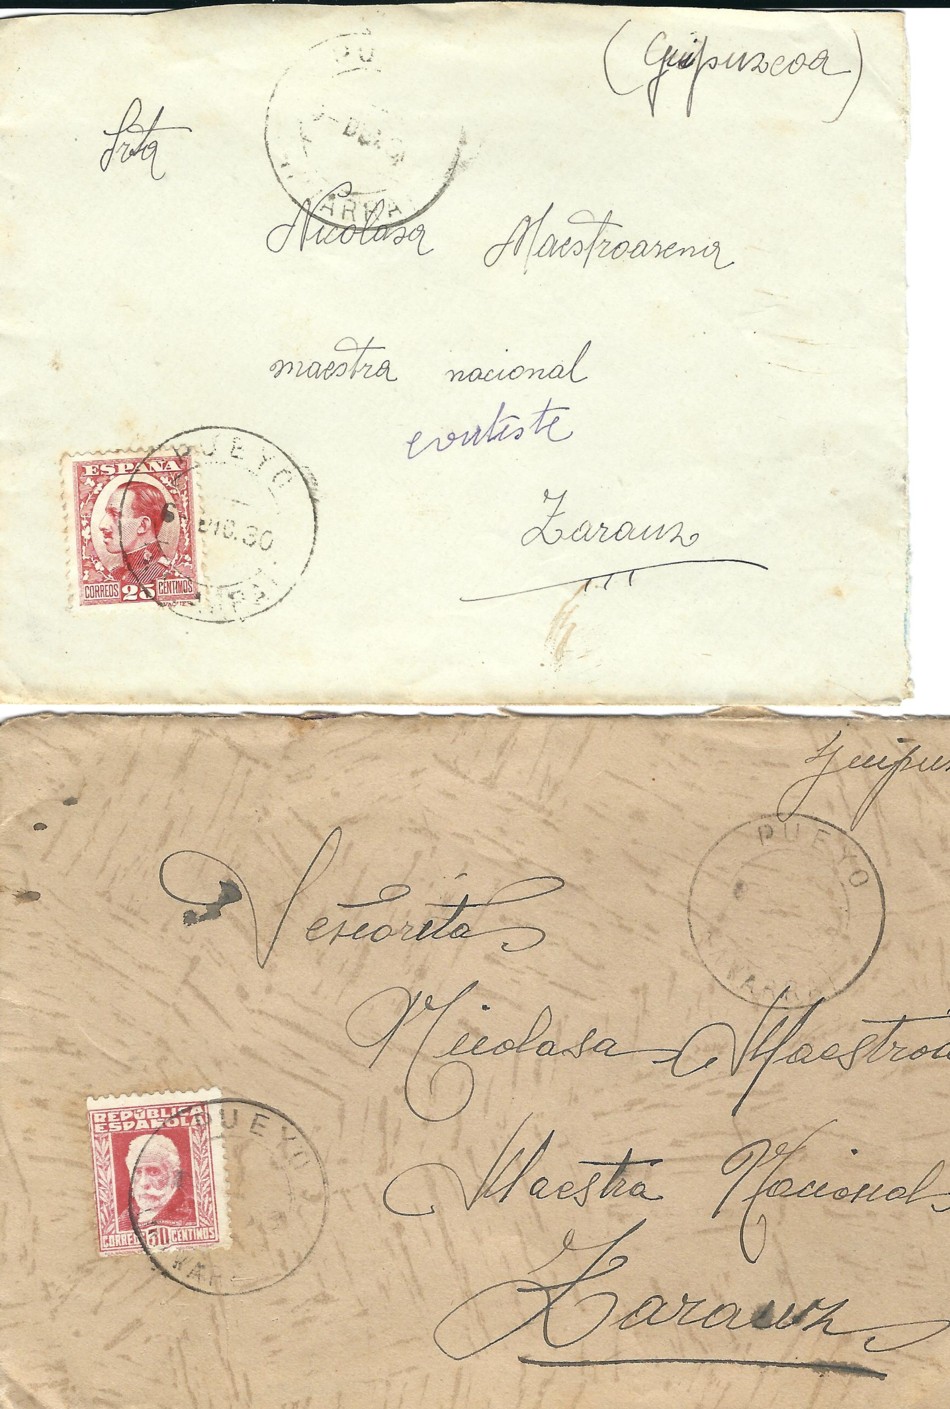 (Guipuzcoa)
Srta
PU
DIC.
NAVARRA
Nicolasa Maestroarena
maestra nacional
Zarauz
ESPAÑA
CORREOS 25 CENTIMOS
PUEYO
6 DIC.30
Guipuz
PUEYO
NAVARRA
Señorita
Nicolasa Maestroa
Maestra Nacional
Zarauz
REPÚBLICA
ESPAÑOLA
CORREOS 30 CENTIMOS
PUEYO
NAVA